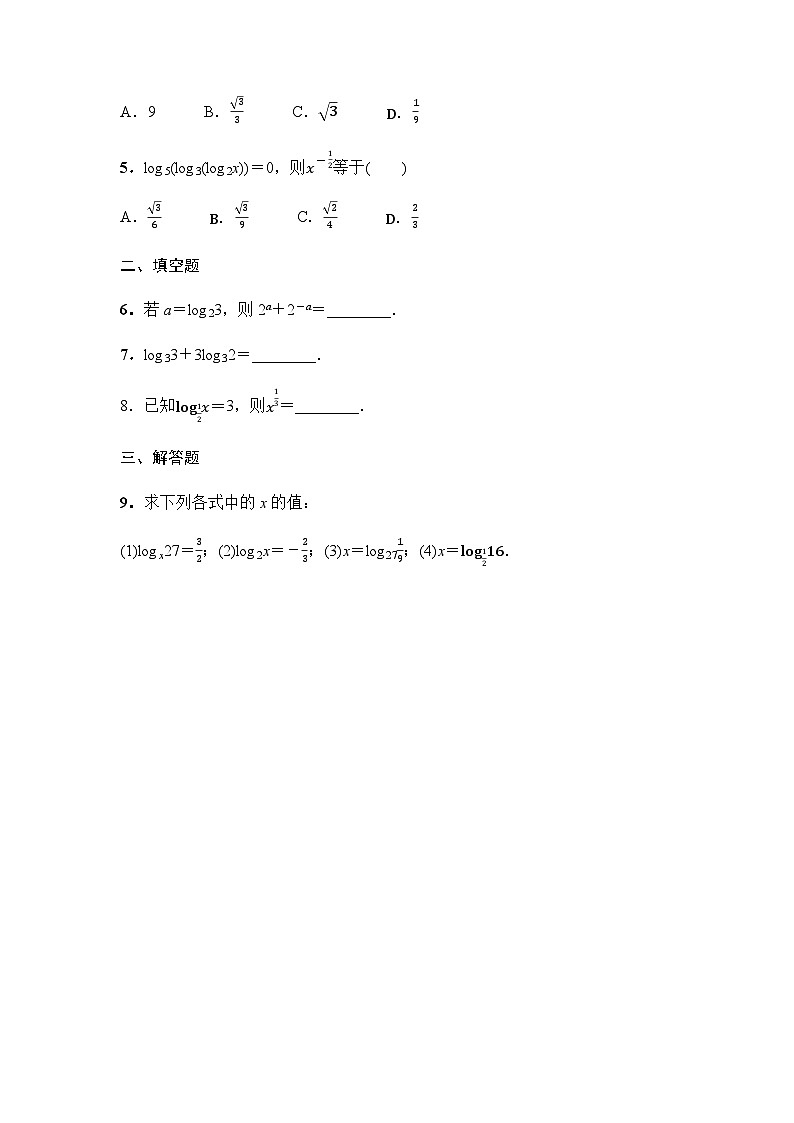 A．9 B．√3/3 C．√3 D．1/9
5．log₅(log₃(log₂x))＝0，则x^(－1/2)等于(　　)
A．√3/6 B．√3/9 C．√2/4 D．2/3
二、填空题
6．若 a＝log₂3，则 2ᵃ＋2⁻ᵃ＝________．
7．log₃3＋3log₃2＝________．
8．已知log_(1/2)x＝3，则x^(1/3)＝________．
三、解答题
9．求下列各式中的 x 的值：
(1)logₓ27＝3/2；(2)log₂x＝－2/3；(3)x＝log₂₇1/9；(4)x＝log_(1/2)16．